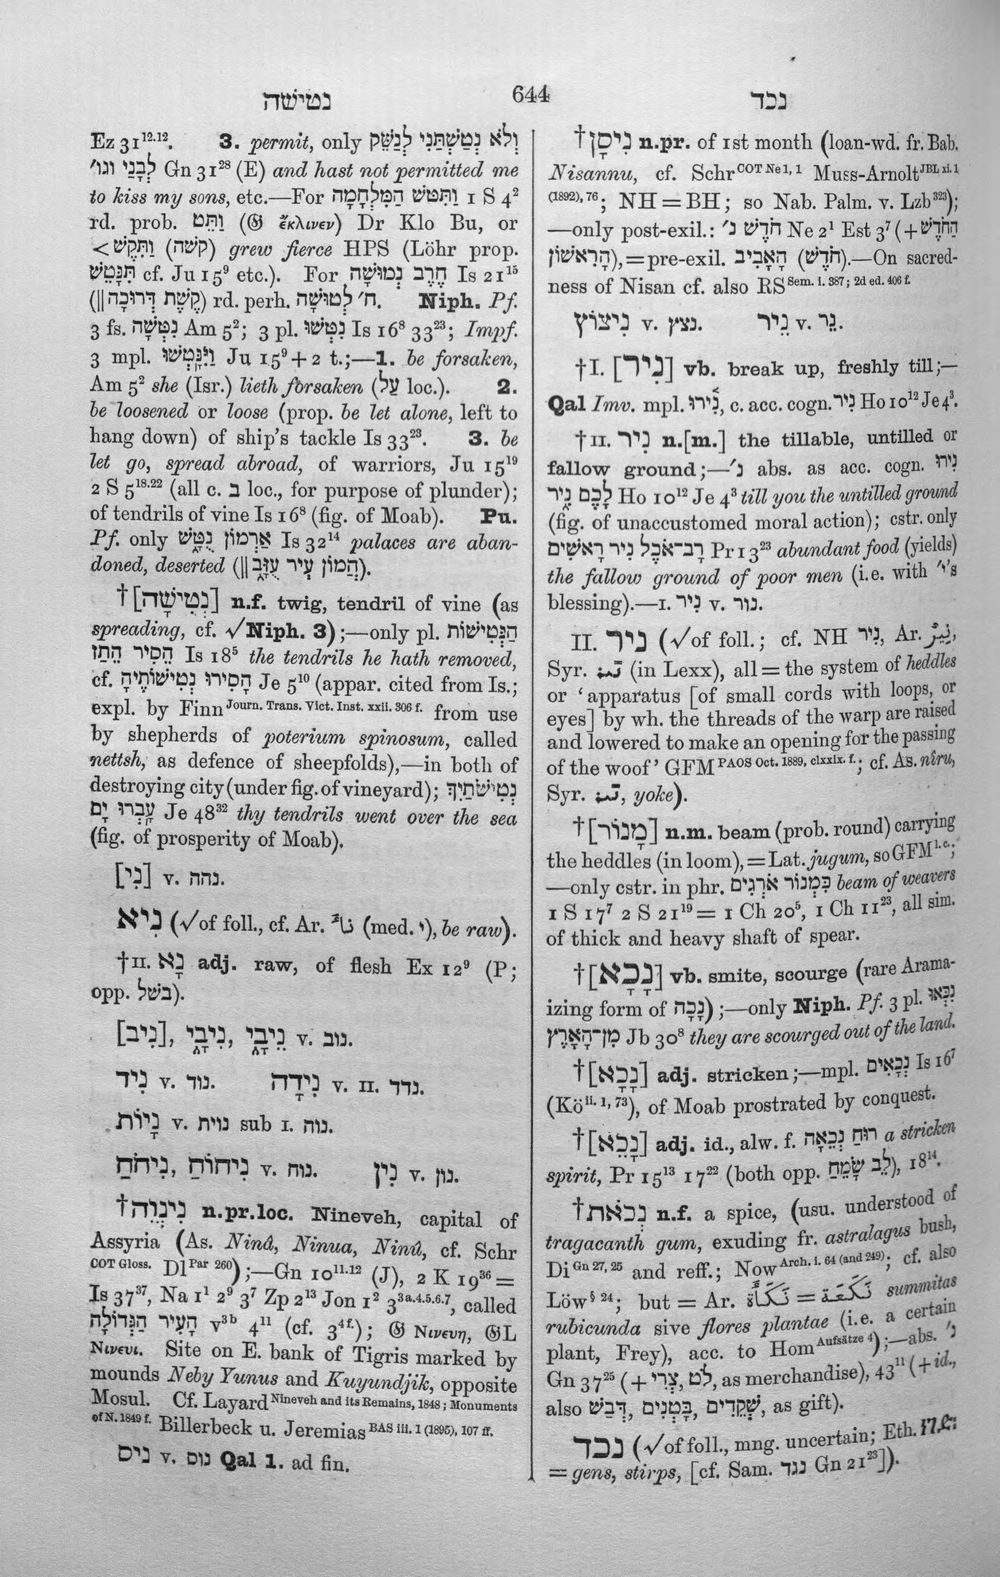 נטישה 644 נכד
Ez 31¹²·¹². 3. permit, only וְלֹא נְטַשְׁתַּנִי לְנַשֵּׁק
לְבָנַי וגו׳ Gn 31²⁸ (E) and hast not permitted me
to kiss my sons, etc.—For וַתִּטֹּשׁ הַמִּלְחָמָה 1 S 4²
rd. prob. וַתֵּט (𝔊 ἔκλινεν) Dr Klo Bu, or
< וַתִּקֶשׁ (קשה) grew fierce HPS (Löhr prop.
תִּנָּטֵשׁ cf. Ju 15⁹ etc.). For חֶרֶב נְטוּשָׁה Is 21¹⁵
(‖ קֶשֶׁת דְּרוּכָה) rd. perh. ח׳ לְטוּשָׁה. Niph. Pf.
3 fs. נִטְּשָׁה Am 5²; 3 pl. נִטְּשׁוּ Is 16⁸ 33²³; Impf.
3 mpl. וַיִּנָּטְשׁוּ Ju 15⁹ + 2 t.;—1. be forsaken,
Am 5² she (Isr.) lieth forsaken (עַל loc.). 2.
be loosened or loose (prop. be let alone, left to
hang down) of ship's tackle Is 33²³. 3. be
let go, spread abroad, of warriors, Ju 15¹⁹
2 S 5¹⁸·²² (all c. בְּ loc., for purpose of plunder);
of tendrils of vine Is 16⁸ (fig. of Moab). Pu.
Pf. only אַרְמוֹן נֻטָּשׁ Is 32¹⁴ palaces are aban-
doned, deserted (‖ הֲמוֹן עִיר עֻזָּב).
†[נְטִישָׁה] n.f. twig, tendril of vine (as
spreading, cf. √Niph. 3);—only pl. הַנְּטִישׁוֹת
הֵסִיר הֵתַז Is 18⁵ the tendrils he hath removed,
cf. הָסִירוּ נְטִישׁוֹתֶיהָ Je 5¹⁰ (appar. cited from Is.;
expl. by Finn Journ. Trans. Vict. Inst. xxii. 306 f. from use
by shepherds of poterium spinosum, called
nettsh, as defence of sheepfolds),—in both of
destroying city (under fig. of vineyard); נְטִישֹׁתַיִךְ
עָבְרוּ יָם Je 48³² thy tendrils went over the sea
(fig. of prosperity of Moab).
[נִי] v. נהה.
נִיא (√of foll., cf. Ar. نَاءَ (med. י), be raw).
†II. נָא adj. raw, of flesh Ex 12⁹ (P;
opp. בשׁל).
[נִיב], נִיבָי, נֵיבָי v. נוב.
נִיד v. נוד. נִידָה v. II. נדד.
נָיוֹת v. נוית sub I. נוה.
נִיחֹחַ, נִיחוֹחַ v. נוח. נִין v. נון.
†נִינְוֵה n.pr.loc. Nineveh, capital of
Assyria (As. Ninâ, Ninua, Ninû, cf. Schr
COT Gloss. Dl Par 260);—Gn 10¹¹·¹² (J), 2 K 19³⁶ =
Is 37³⁷, Na 1¹ 2⁹ 3⁷ Zp 2¹³ Jon 1² 3³ᵃ·⁴·⁵·⁶·⁷, called
הָעִיר הַגְּדוֹלָה v³ᵇ 4¹¹ (cf. 3⁴ᶠ·); 𝔊 Νινευη, 𝔊L
Νινευι. Site on E. bank of Tigris marked by
mounds Neby Yunus and Kuyundjik, opposite
Mosul. Cf. Layard Nineveh and its Remains, 1848; Monuments
of N. 1849 f. Billerbeck u. Jeremias BAS iii. 1 (1895), 107 ff.
נִיס v. נוס Qal 1. ad fin.
†נִיסָן n.pr. of 1st month (loan-wd. fr. Bab.
Nisannu, cf. Schr COT Ne 1, 1 Muss-Arnolt JBL xi. 1
(1892), 76; NH = BH; so Nab. Palm. v. Lzb³²³);
—only post-exil.: חֹדֶשׁ נ׳ Ne 2¹ Est 3⁷ (+ הַחֹדֶשׁ
הָרִאשׁוֹן), = pre-exil. הָאָבִיב (חֹדֶשׁ).—On sacred-
ness of Nisan cf. also RS Sem. i. 387; 2d ed. 406 f.
נִיצוֹץ v. נצץ. נֵיר v. נֵר.
†I. [נִיר] vb. break up, freshly till;—
Qal Imv. mpl. נִירוּ, c. acc. cogn. נִיר Ho 10¹² Je 4³.
†II. נִיר n.[m.] the tillable, untilled or
fallow ground;—נ׳ abs. as acc. cogn. נִירוּ
לָכֶם נִיר Ho 10¹² Je 4³ till you the untilled ground
(fig. of unaccustomed moral action); cstr. only
רָב־אֹכֶל נִיר רָאשִׁים Pr 13²³ abundant food (yields)
the fallow ground of poor men (i.e. with ׳י's
blessing).—I. נִיר v. נור.
II. ניר (√of foll.; cf. NH נִיר, Ar. نِيرٌ,
Syr. ܢܝܪ (in Lexx), all = the system of heddles
or 'apparatus [of small cords with loops, or
eyes] by wh. the threads of the warp are raised
and lowered to make an opening for the passing
of the woof' GFM PAOS Oct. 1889, clxxix. f.; cf. As. nîru,
Syr. ܢܝܪ, yoke).
†[מָנוֹר] n.m. beam (prob. round) carrying
the heddles (in loom), = Lat. jugum, so GFM l.c.;
—only cstr. in phr. כִּמְנוֹר אֹרְגִים beam of weavers
1 S 17⁷ 2 S 21¹⁹ = 1 Ch 20⁵, 1 Ch 11²³, all sim.
of thick and heavy shaft of spear.
†[נָכָא] vb. smite, scourge (rare Arama-
izing form of נָכָה);—only Niph. Pf. 3 pl. נִכְּאוּ
מִן־הָאָרֶץ Jb 30⁸ they are scourged out of the land.
†[נָכָא] adj. stricken;—mpl. נְכָאִים Is 16⁷
(Kö ii. 1, 73), of Moab prostrated by conquest.
†[נָכֵא] adj. id., alw. f. רוּחַ נְכֵאָה a stricken
spirit, Pr 15¹³ 17²² (both opp. לֵב שָׂמֵחַ), 18¹⁴.
†נְכֹאת n.f. a spice, (usu. understood of
tragacanth gum, exuding fr. astralagus bush,
Di Gn 27, 25 and reff.; Now Arch. i. 64 (and 249); cf. also
Löw § 24; but = Ar. نَكَعَة = نَكَأَة summitas
rubicunda sive flores plantae (i.e. a certain
plant, Frey), acc. to Hom Aufsätze 4);—abs. נ׳
Gn 37²⁵ (+ לֹט, צֳרִי, as merchandise), 43¹¹ (+ id.,
also דְּבַשׁ, בָּטְנִים, שְׁקֵדִים, as gift).
נכד (√of foll., mng. uncertain; Eth.
= gens, stirps, [cf. Sam. נגד Gn 21²³]).